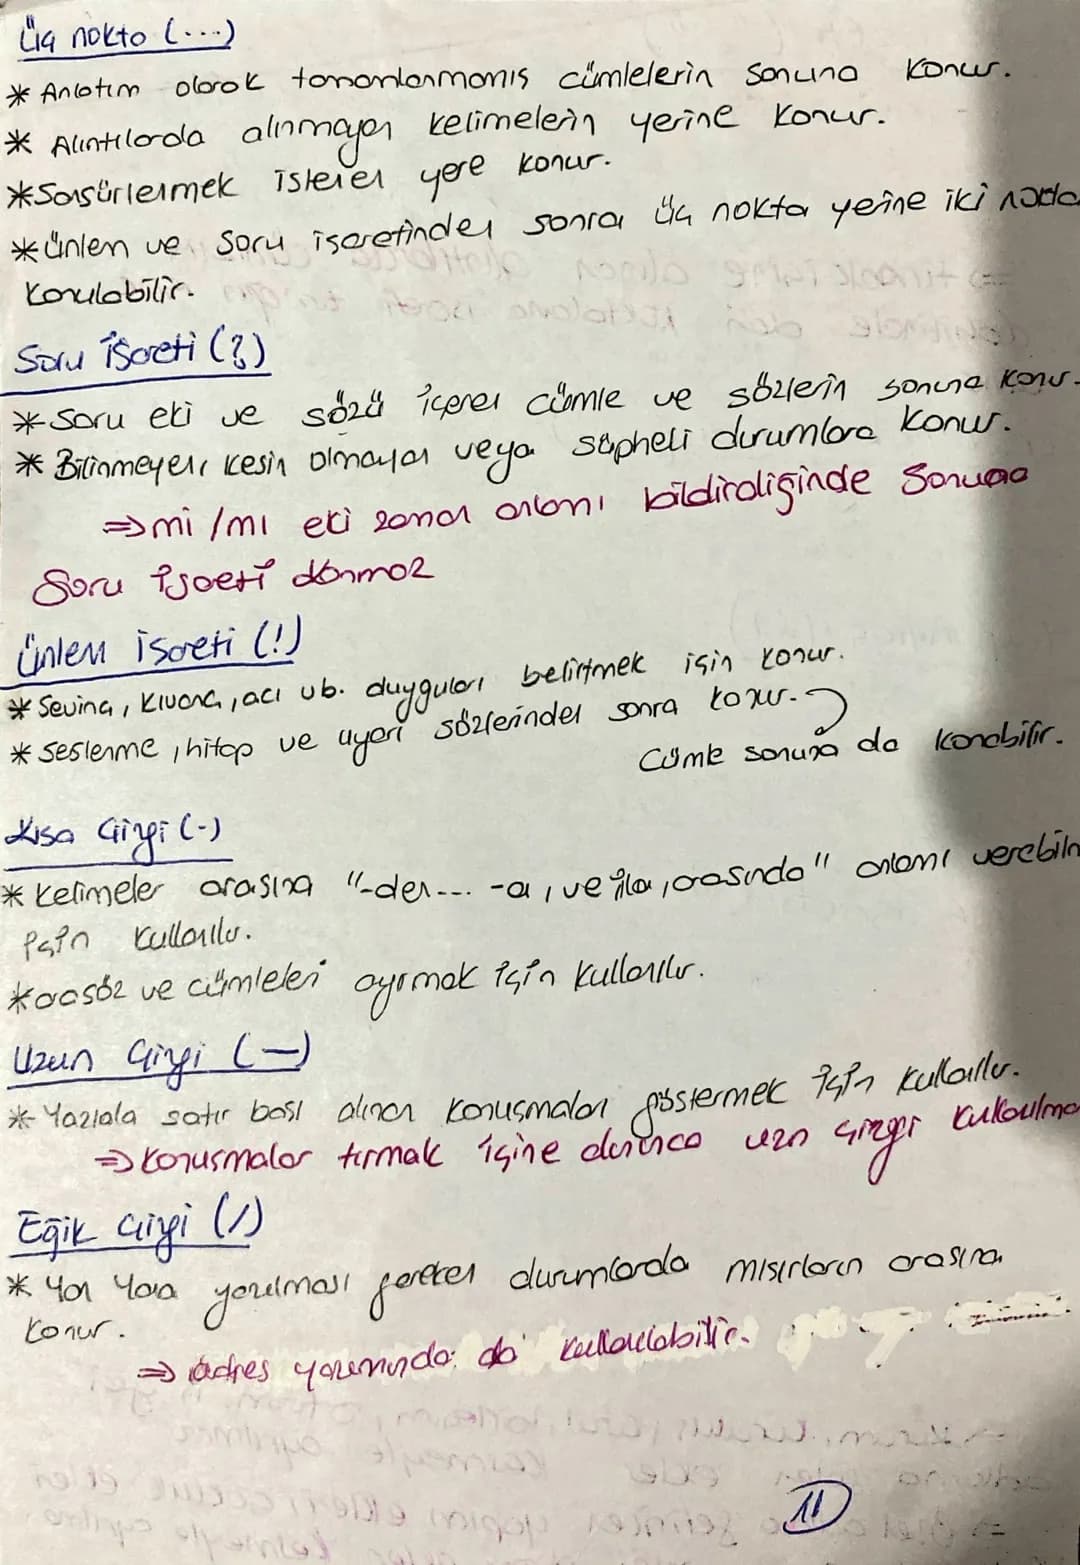 Üç nokta (...)
* Anlatım olarak tamamlanmamış cümlelerin sonuna konur.
* Alıntılarda alınmayan kelimelerin yerine konur.
* Sansürlenmek istenen yere konur.
* Ünlem ve soru işaretinden sonra üç nokta yerine iki nokta
konulabilir.
Soru işareti (?)
* Soru eki ve sözü içeren cümle ve sözlerin sonuna konur.
* Bilinmeyen, kesin olmayan veya şüpheli durumlara konur.
⇒ mi / mı eki zaman anlamı bildirdiğinde sonuna
soru işareti konmaz
Ünlem işareti (!)
* Sevinç, kıvanç, acı vb. duyguları belirtmek için konur.
* Seslenme, hitap ve uyarı sözlerinden sonra konur.
Cümle sonuna da konabilir.
Kısa Çizgi (-)
* Kelimeler arasına "-den... -a, ve ila, arasında" anlamı verebilm
için kullanılır.
* arasöz ve cümleleri ayırmak için kullanılır.
Uzun Çizgi (—)
* Yazıda satır başı alınan konuşmaları göstermek için kullanılır.
⇒ Konuşmalar tırnak içine alınınca uzun çizgi kullanılma
Eğik Çizgi (/)
* Yan yana yazılması gereken durumlarda mısırların arasına
konur.
⇒ adres yazımında da kullanılabilir.
11